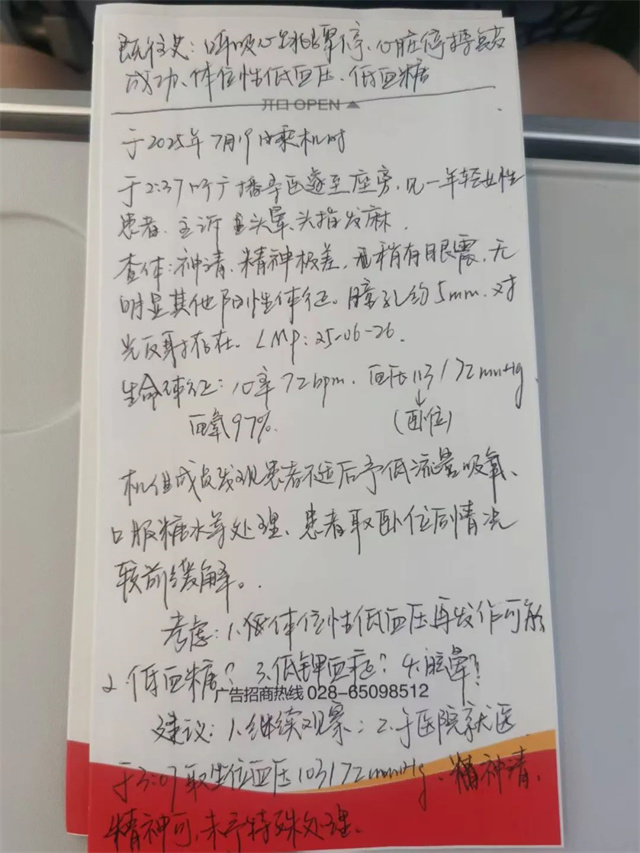 既往史：呼吸心跳骤停、心脏停搏复苏
成功、体位性低血压、低血糖
开口 OPEN
于2025年7月19日乘机时
于2:37呼广播寻医遂至座旁，见一年轻女性
患者，主诉头晕、头指发麻.
查体：神清、精神极差，稍有眼震，无
明显其他阳性体征。瞳孔约5mm.对
光反射存在. LMP: 25-06-26.
生命体征：心率72bpm. 血压113/72mmHg
血氧97%. (卧位)
机组成员发现患者不适后予低流量吸氧、
口服糖水等处理、患者取卧位后情况
较前缓解。
考虑：1.体位性低血压再发作可能
2.低血糖？ 3.低钾血症？ 4.眩晕？
广告招商热线 028-65098512
建议：1.继续观察；2.于医院就医
于3:07取坐位血压103/72mmHg、神清，
精神可，未予特殊处理.